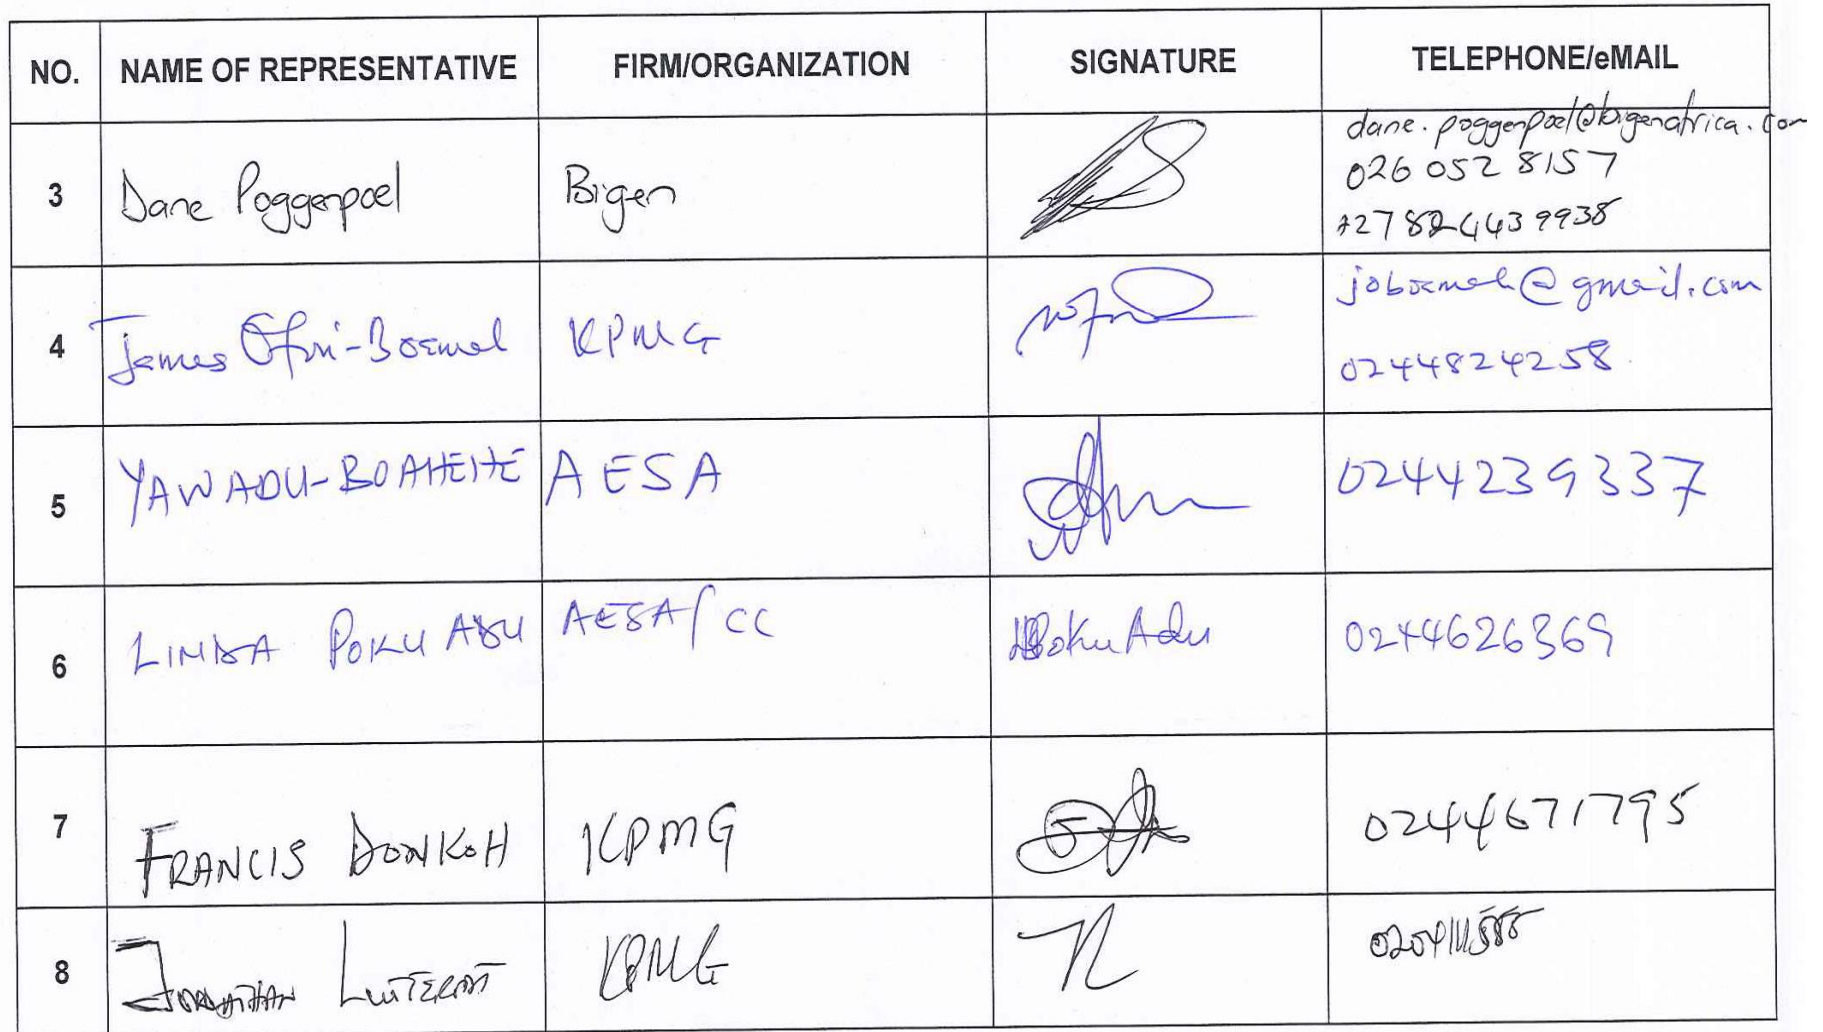 NO. NAME OF REPRESENTATIVE FIRM/ORGANIZATION SIGNATURE TELEPHONE/eMAIL
3 Dane Poggenpoel Bigen dane.poggenpoel@bigenafrica.com
026 052 8157
+27824439938
4 James Ofori-Boamah KPMG joboamah@gmail.com
0244824258
5 YAW ADU-BOAHENE AESA 0244239337
6 LINDA POKU ADU AESA/CC PokuAdu 0244626369
7 FRANCIS DONKOH KPMG 0244671795
8 JONATHAN KPMG